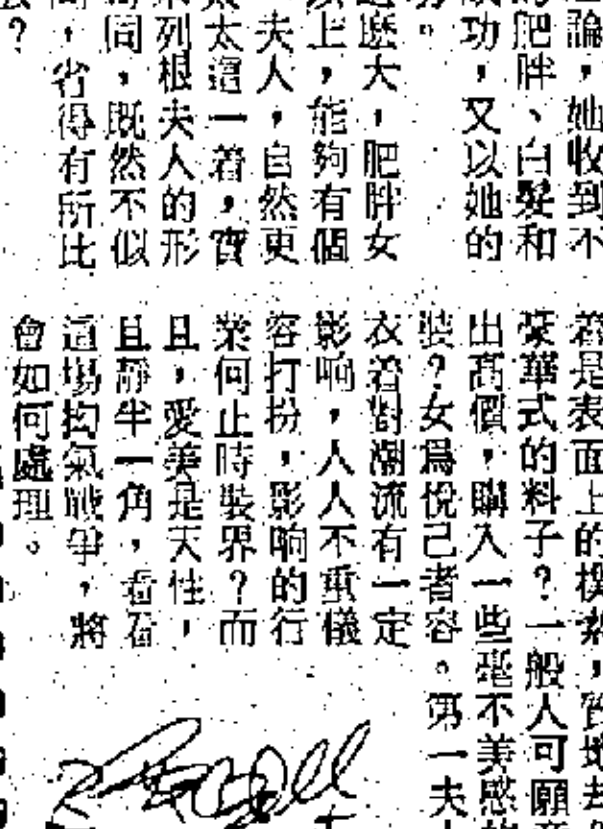 論，她收到不
肥胖、白髮和
功，又以她的
麼大，肥胖女
上，能夠有個
夫人，自然更
太這一着，實
列根夫人的形
同，既然不似
，省得有所比
？
着是表面上的樸素，質地去
豪華式的料子？一般人可願
出高價，購入一些毫不美感
裝？女爲悅己者容。第一夫
衣着對潮流有一定
影响，人人不重儀
容打扮，影响的行
業何止時裝界？而
且，愛美是天性，
且靜半一角，看看
這場拘氣戰爭，將
會如何處理。